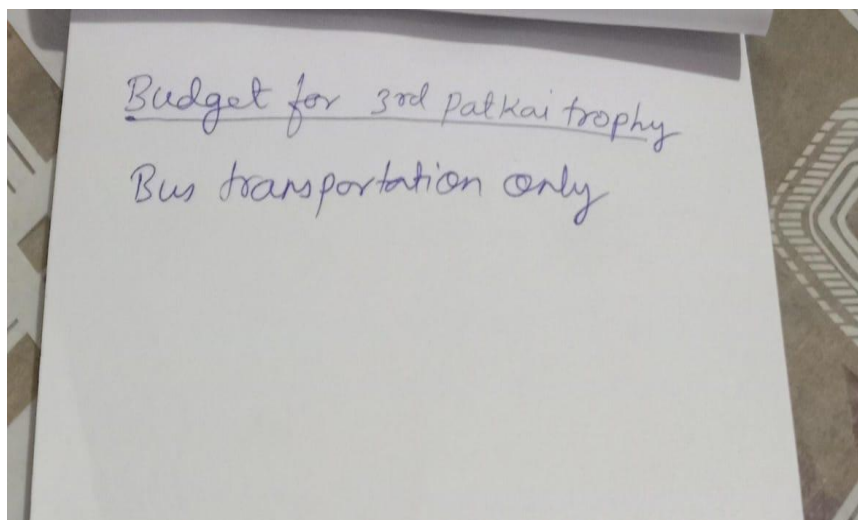 Budget for 3rd Patkai trophy
Bus transportation only